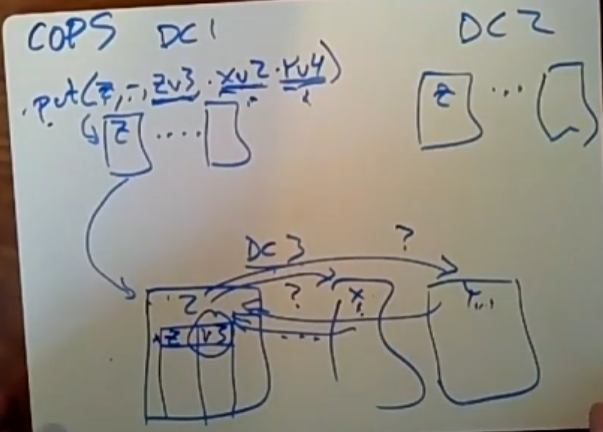 COPS DC1
DC2
.put(z,-,zv3,xv2,yv4)
z ....
z ...
DC3
?
z ? x
z v3 ...